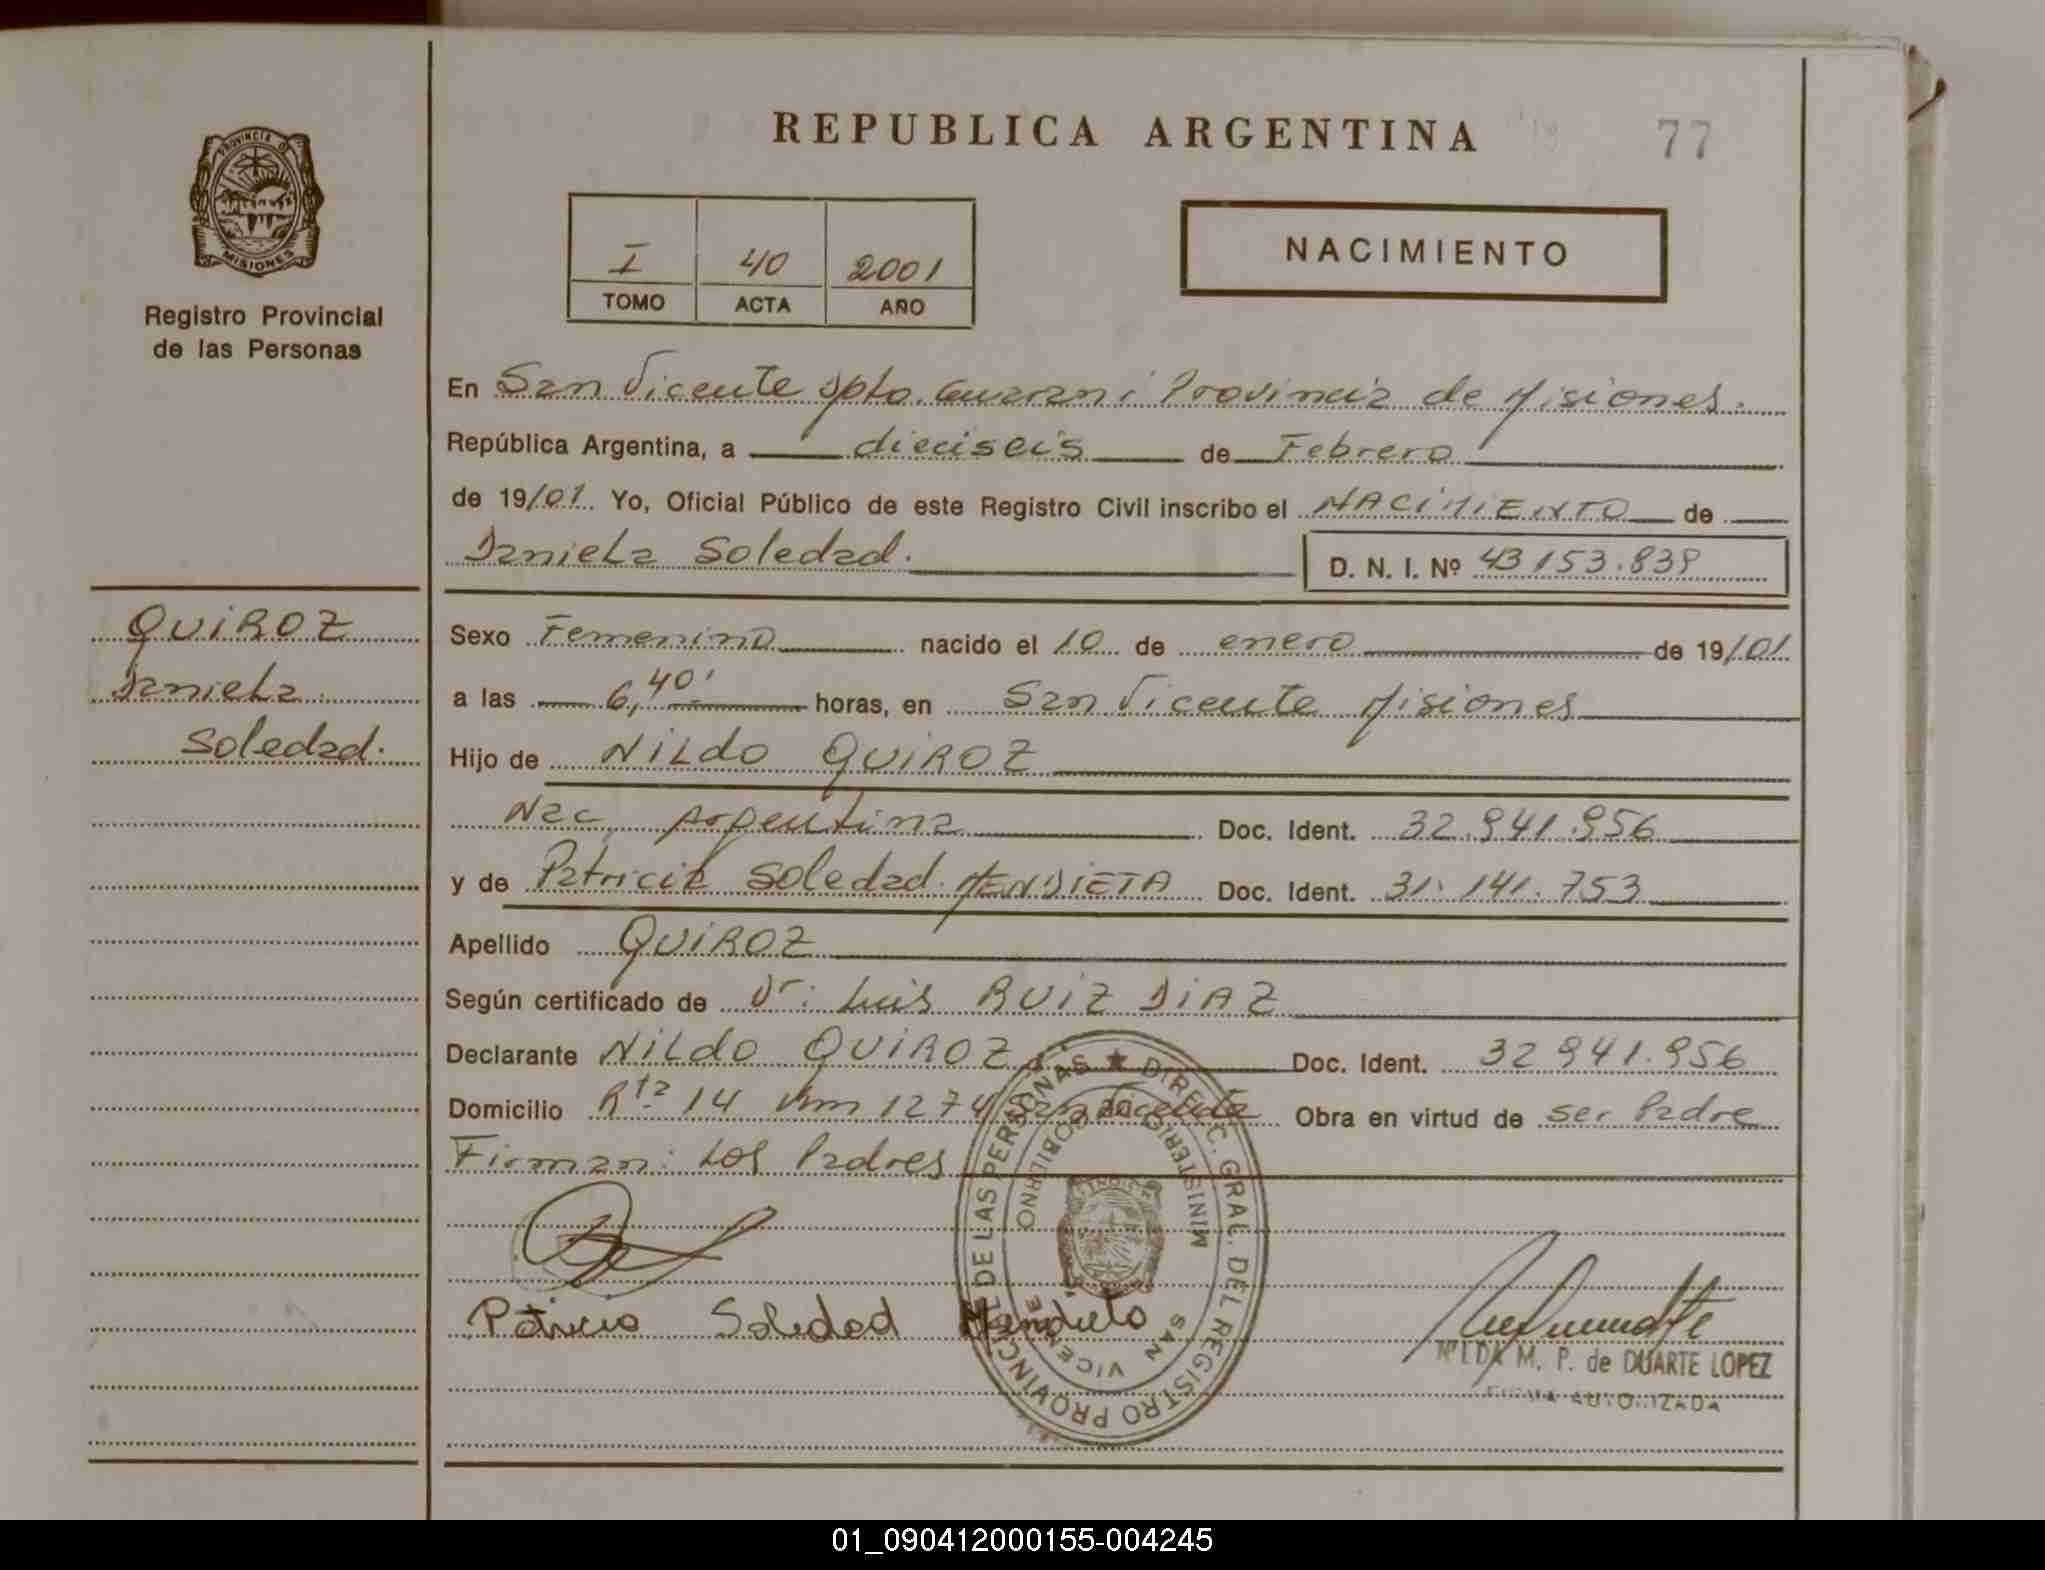 REPUBLICA ARGENTINA
77
PROVINCIA DE
MISIONES
Registro Provincial
de las Personas
I 40 2001
TOMO ACTA AÑO
NACIMIENTO
En San Vicente Dpto. Guaraní Provincia de Misiones.
República Argentina, a dieciseis de Febrero
de 19/01. Yo, Oficial Público de este Registro Civil inscribo el NACIMIENTO de
Daniela Soledad.
D. N. I. Nº 43153.839
QUIROZ
Daniela
Soledad.
Sexo Femenino nacido el 10 de enero de 19/01
a las 6,40' horas, en San Vicente Misiones
Hijo de NILDO QUIROZ
Nac. Argentina Doc. Ident. 32.941.956
y de Patricia Soledad MENDIETA Doc. Ident. 31.141.753
Apellido QUIROZ
Según certificado de Dr: Luis RUIZ DIAZ
Declarante NILDO QUIROZ Doc. Ident. 32941.956
Domicilio Rta 14 Km 1274 San Vicente Obra en virtud de ser Padre
Firman: Los Padres
DIRECC. GRAL. DEL REGISTRO PROVINCIAL DE LAS PERSONAS
MINISTERIO DE GOBIERNO
SAN VICENTE
Patricia Soledad Mendieta
NILDA M. P. de DUARTE LOPEZ
FIRMA AUTORIZADA
01_090412000155-004245